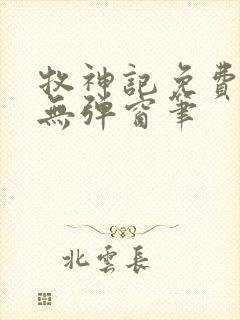 牧神記免費
無彈窗筆
北雲長